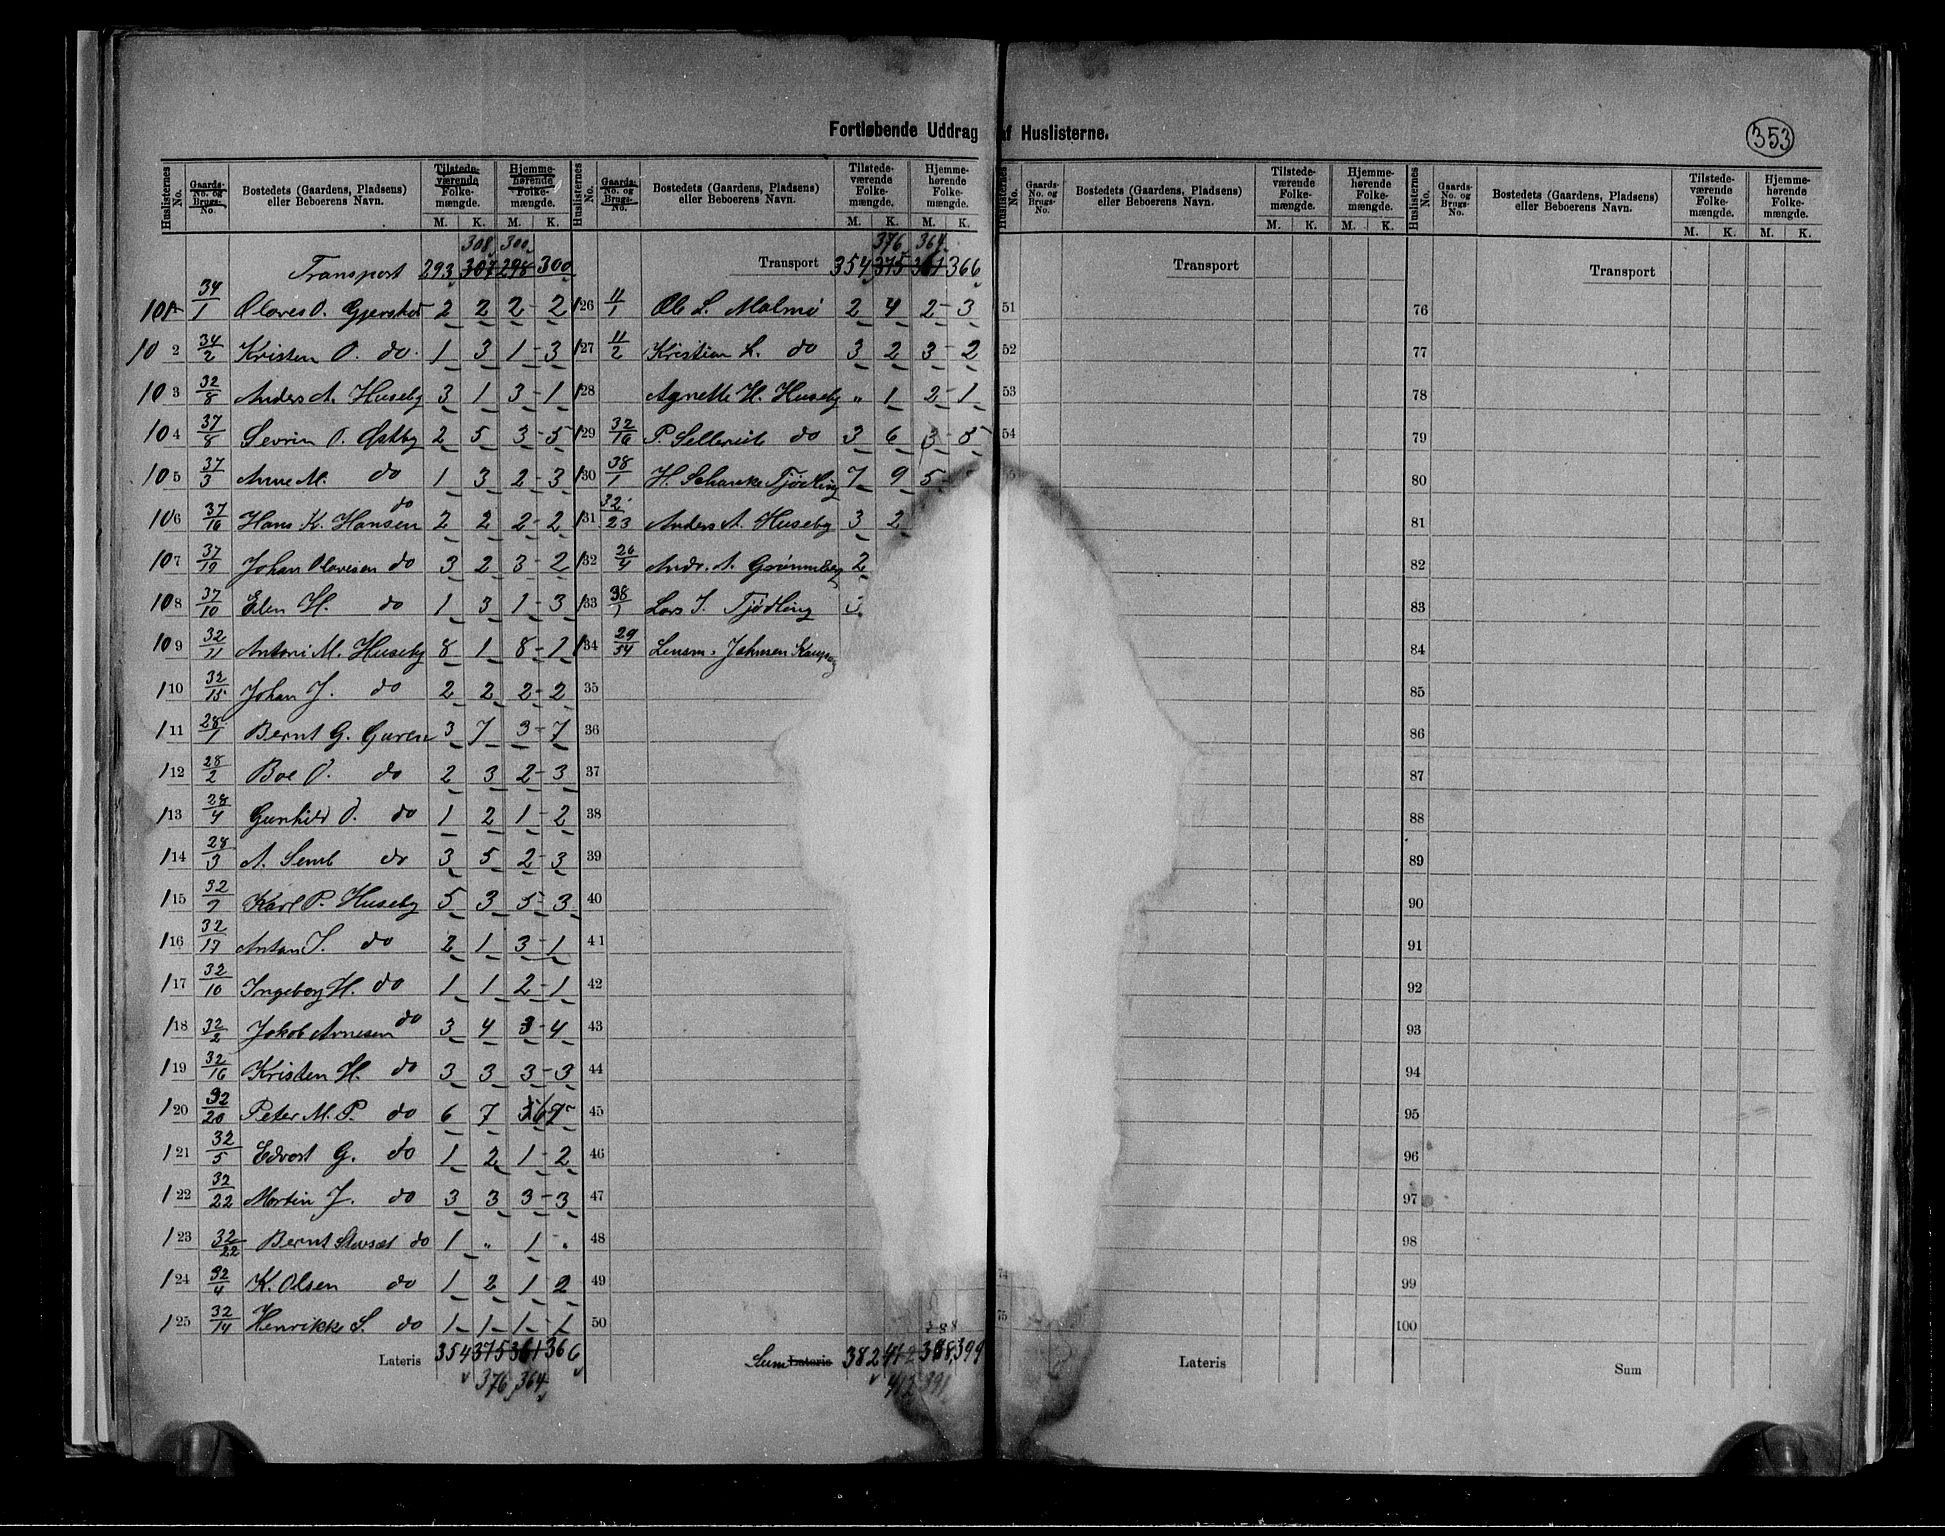 Fortløbende Uddrag af Huslisterne.
353
Huslisternes No. Gaards-No. og Brugs-No. Bostedets (Gaardens, Pladsens) eller Beboerens Navn. Tilstedeværende Folkemængde. Hjemmehørende Folkemængde.
M. K. M. K.
308 300
Transport 293 307 298 300
101 34/1 Olaves O. Gjersket 2 2 2 - 2
102 34/2 Kristen O. do. 1 3 1 - 3
103 32/8 Anders A. Huseby 3 1 3 - 1
104 37/8 Sevrin O. Østby 2 5 3 - 5
105 37/3 Anne M. do 1 3 2 - 3
106 37/16 Hans K. Hansen do 2 2 2 - 2
107 37/19 Johan Olavesen do 3 2 3 - 2
108 37/10 Elen H. do 1 3 1 - 3
109 32/11 Antoni M. Huseby 8 1 8 - 1
110 32/15 Johan J. do 2 2 2 - 2
111 28/1 Bernt G. Guren 3 7 3 - 7
112 28/2 Boe O. do 2 3 2 - 3
113 28/4 Gunhild O. do 1 2 1 - 2
114 28/3 A. Semb do 3 5 2 - 3
115 32/7 Karl P. Huseby 5 3 5 - 3
116 32/17 Anton S. do 2 1 3 - 1
117 32/10 Ingeborg H. do 1 1 2 - 1
118 32/2 Jokob Arnesen do 3 4 3 - 4
119 32/16 Kristen H. do 3 3 3 - 3
120 32/20 Peter M. P. do 6 7
121 32/5 Edvart G. do 1 2 1 - 2
122 32/22 Martin J. do 3 3 3 - 3
123 32/22 Bernt Stavsæt do 1 " 1 "
124 32/4 K. Olsen do 1 2 1 - 2
125 32/14 Henrikke S. do 1 - 1 - 1 - 1
Lateris 354 375 361 366
376 364
Huslisternes No. Gaards-No. og Brugs-No. Bostedets (Gaardens, Pladsens) eller Beboerens Navn. Tilstedeværende Folkemængde. Hjemmehørende Folkemængde.
M. K. M. K.
376 364
Transport 354 375 361 366
126 11/1 Ole L. Malmø 2 4 2 - 3
127 11/2 Kristian L. do 3 2 3 - 2
128 Agnette H. Huseby " 1 2 - 1
129 32/16 P. Sellereite do 3 6 3 - 5
130 38/1 H. Schancke Tjødling 7 9 5
131 32/23 Anders A. Huseby 3 2
132 26/4 Andr. A. Grønneberg 2
133 38/1 Lars I. Tjødling 3
134 29/54 Lensm. Johnsen Kaupang
35
36
37
38
39
40
41
42
43
44
45
46
47
48
49
50
388
Sum Lateris 382 412 368 399
412 391
Huslisternes No. Gaards-No. og Brugs-No. Bostedets (Gaardens, Pladsens) eller Beboerens Navn. Tilstedeværende Folkemængde. Hjemmehørende Folkemængde.
M. K. M. K.
Transport
51
52
53
54
74
75
Lateris
Huslisternes No. Gaards-No. og Brugs-No. Bostedets (Gaardens, Pladsens) eller Beboerens Navn. Tilstedeværende Folkemængde. Hjemmehørende Folkemængde.
M. K. M. K.
Transport
76
77
78
79
80
81
82
83
84
85
86
87
88
89
90
91
92
93
94
95
96
97
98
99
100
Sum